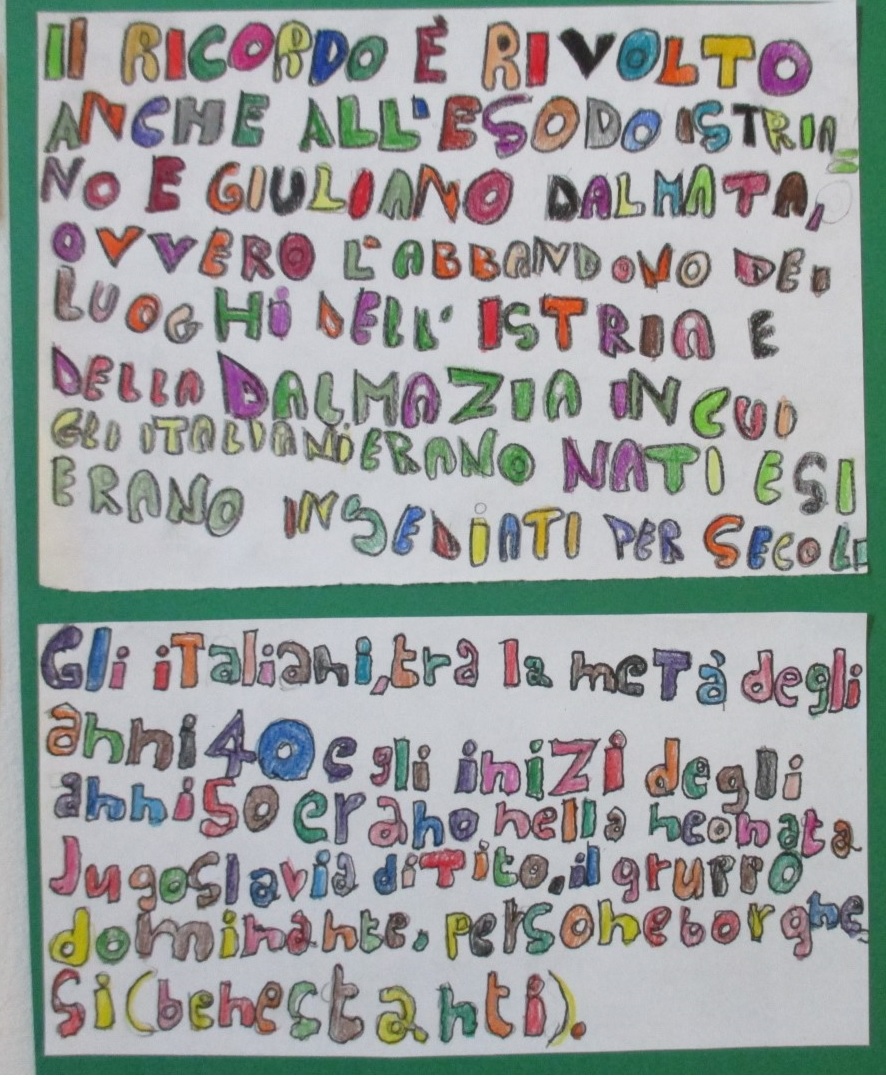 Il RICORDO È RIVOLTO
ANCHE ALL'ESODO ISTRIA=
NO E GIULIANO DALMATA,
OVVERO L'ABBANDONO DEI
LUOGHI DELL' ISTRIA E
DELLA DALMAZIA IN CUI
GLI ITALIANI ERANO NATI E SI
ERANO INSEDIATI PER SECOLI
Gli iTaliani, tra la meTà degli
anni 40 e gli iniZi degli
anni 50 erano nella neonata
Jugoslavia di Tito, il gruppo
dominante, persone borghe
si (benestanti).